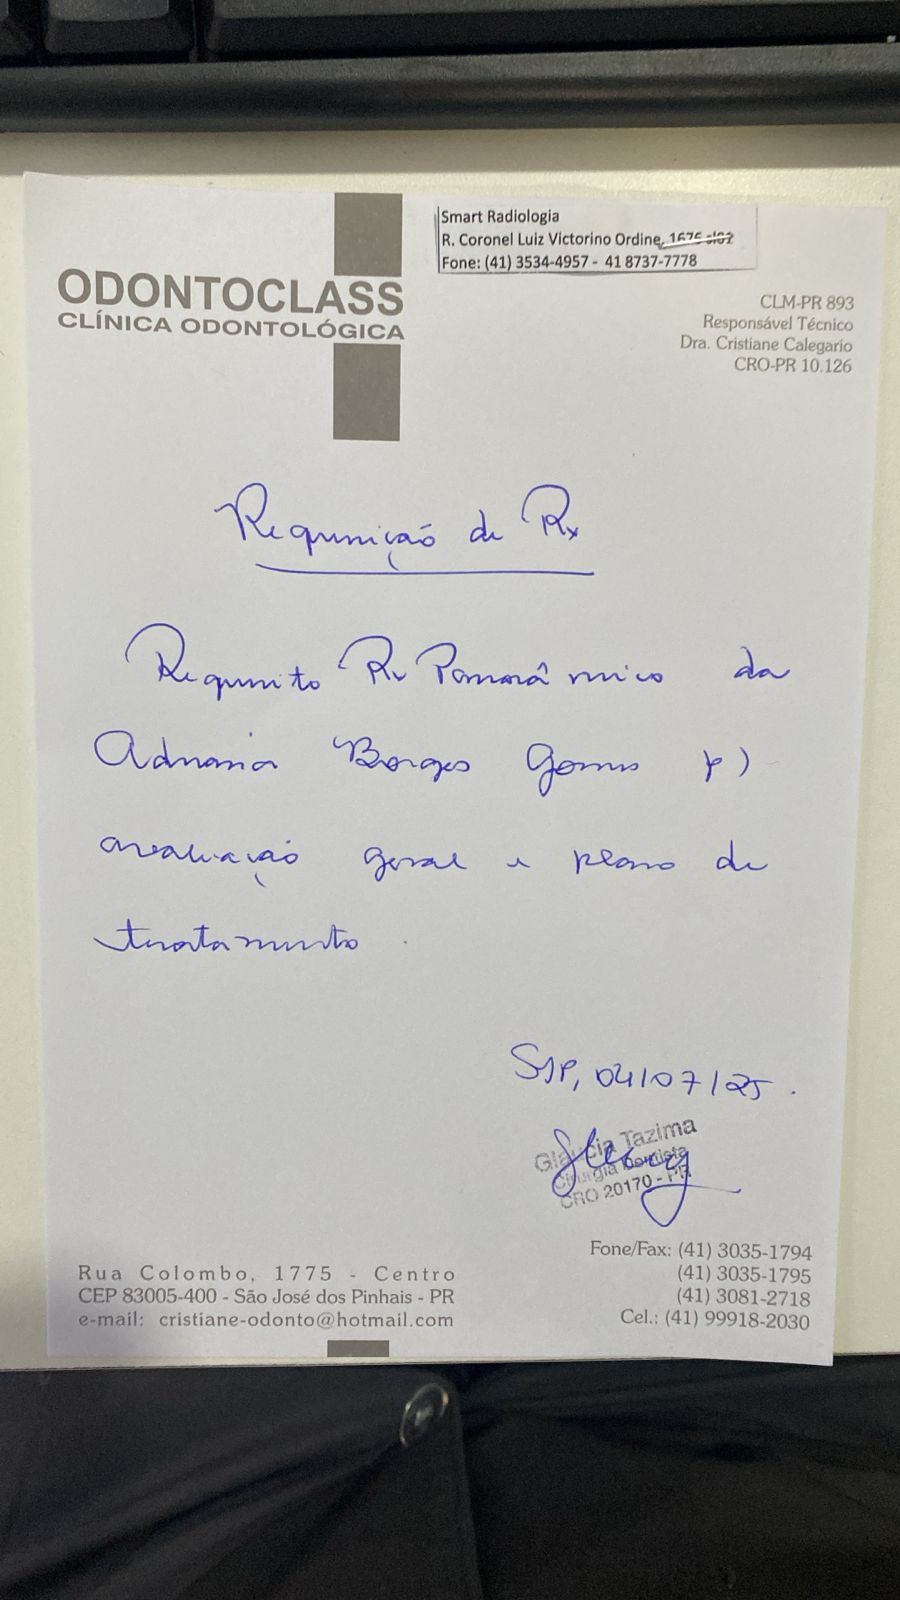 Smart Radiologia
R. Coronel Luiz Victorino Ordine, 1676 sl02
Fone: (41) 3534-4957 - 41 8737-7778
ODONTOCLASS
CLÍNICA ODONTOLÓGICA
CLM-PR 893
Responsável Técnico
Dra. Cristiane Calegario
CRO-PR 10.126
Requisição de Rx
Requisito Rx Panorâmico da
Adriana Borges Gomes p)
avaliação geral e plano de
tratamento.
SJP, 04/07/25.
Gláucia Tazima
Cirurgiã Dentista
CRO 20170 - PR
Rua Colombo, 1775 - Centro
CEP 83005-400 - São José dos Pinhais - PR
e-mail: cristiane-odonto@hotmail.com
Fone/Fax: (41) 3035-1794
(41) 3035-1795
(41) 3081-2718
Cel.: (41) 99918-2030